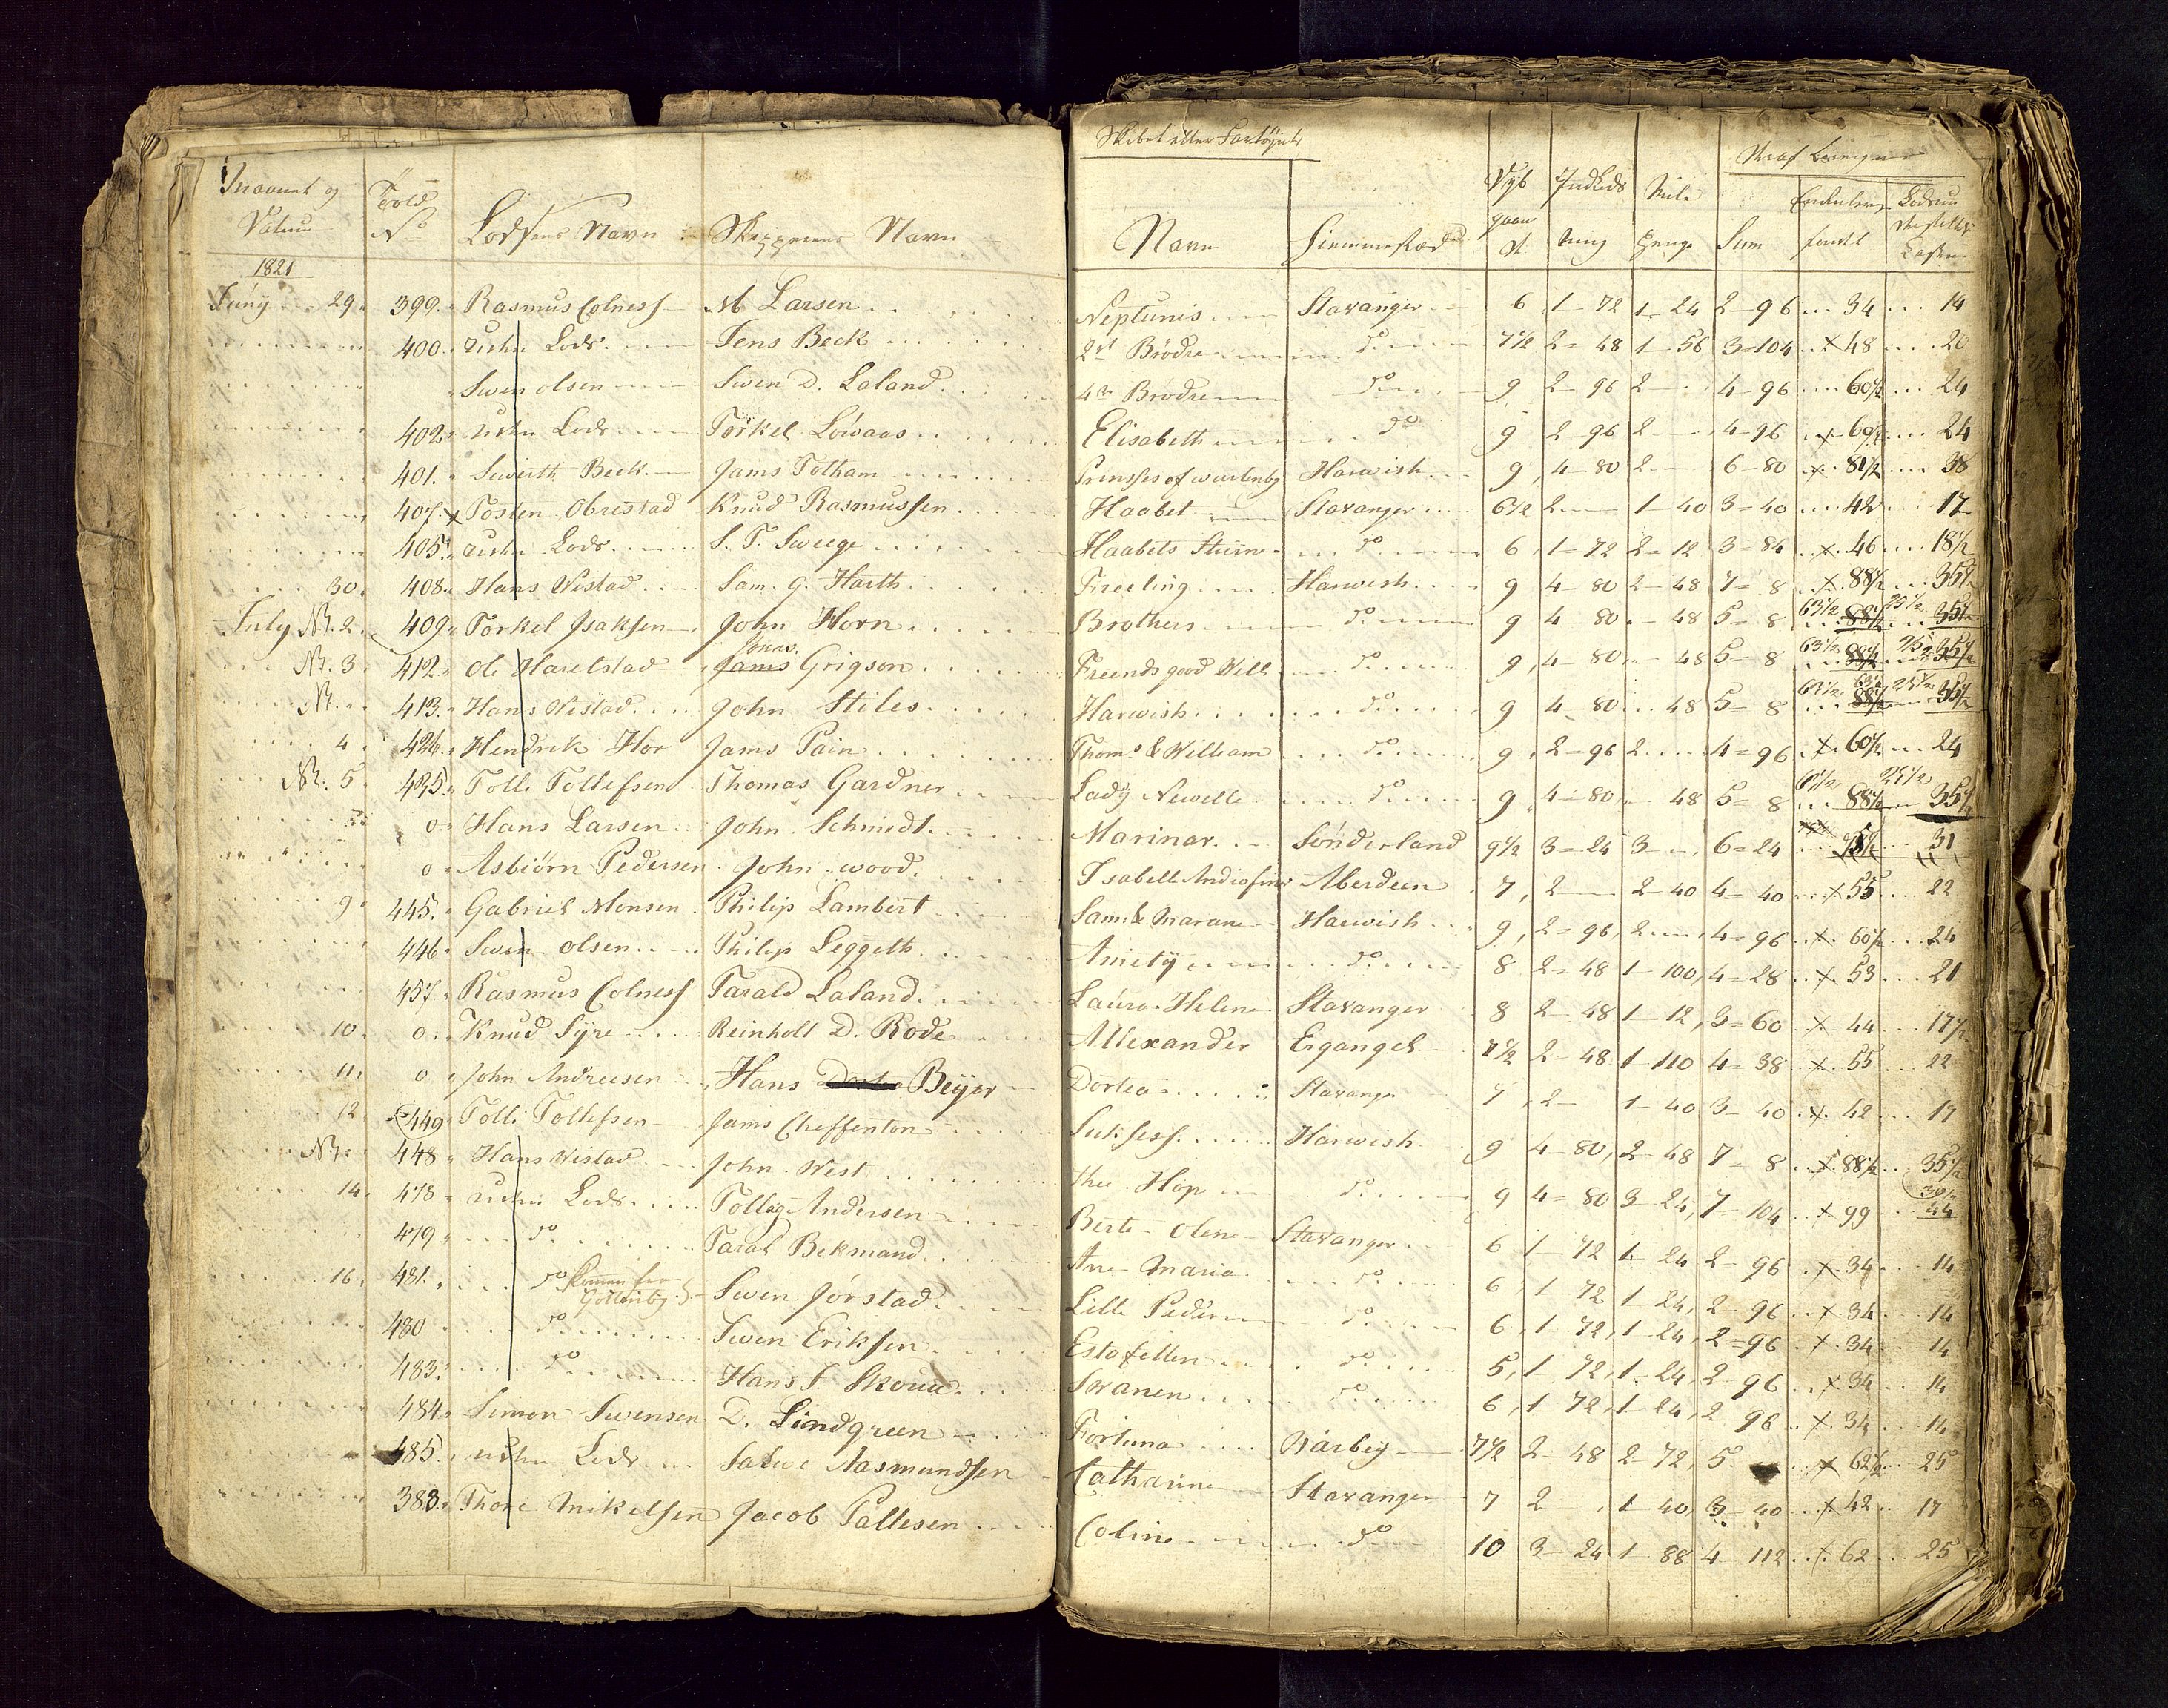 Maaned og
Datum
Told
No
Lodsens Navn
Skipperens Navn
1821
Juny 29. 399. Rasmus Colness M Larsen
400. uden Lods. Jens Beck
Swen olsen Swen D. Laland
402. uden Lods Torkel Lowaas
401. Siwerth Beck Jams Totham
407. x Tosten Obrestad Knud Rasmussen
405. uden Lods S. T. Sweege
30. 408. Hans Wistad Sam. G. Harth
July N. 2. 409. Torkel Jsaksen John Horn
Jonas.
N. 3 412. Ole Harelstad Jams Grigson
N. 413. Hans Wistad John Stiles
4 426. Hendrik Hor Jams Pain
N. 5 425. Tolle Tollefsen Thomas Gardner
0. Hans Larsen John Schmidt
0 Asbiörn Pedersen John wood
9 445. Gabriel Monsen Philip Lambert
446. Swen olsen Philip Leggeth
457. Rasmus Colness Tarald Laland
10. 0. Knud Syre Reinholt D. Rode
11. 0 John Andreesen Hans Beijer
12 449 Tolle Tollefsen Jams Cheffenton
N. 448 Hans Wistad John West
14. 478 uden Lods Tollag Andersen
479 do Taral Bekmand
16. 481. do Kommen fra Gottenbg. Swen Jórstad
480 do Swen Eriksen
483. do Hans J. Skoue
484. Simon Swensen D. Lindgreen
485. uden Lods Salve Aasmundsen
383. Thore Mikelsen Jacob Pallesen
Skibet eller Fartöyets
Navn
Hiemmested
Dyb
gaaende
Indlods
ning
Mile
Penge
Sum
Hvoraf
Neptunis Stavanger 6 1-72 1-24 2-96 34 14
2de Brodre do 7½ 2-48 1-56 3-104 x 48 20
4re Brodre do 9 2-96 2 4-96 60½ 24
Elisabeth do 9 2-96 2 4-96 x 60½ 24
Prinsses of wurtenbg Harwish 9 4-80 2 6-80 x 81½ 38
Haabet Stavanger 6½ 2 1-40 3-40 42 17
Haabets Stierne do 6 1-72 2-12 3-84 x 46 18½
Freeling Harwish 9 4-80 2-48 7-8 x 88½ 35½
63½ 25½
Brothers do 9 4-80 48 5-8 88½ 35½
63½ 25½
Freends good Will do 9 4-80 48 5-8 88½ 35½
63½ 63½ 25½
Harwish do 9 4-80 48 5-8 88½ 35½
Thoms & William do 9 2-96 2 4-96 x 60½ 24
63½ 25½
Lady Newelle do 9 4-80 48 5-8 88½ 35½
Marinar Sónderland 9½ 3-24 3 6-24 31
Isabelle Aberdeen 7 2 2-40 4-40 x 55 22
Sam & Marane Harwish 9 2-96 2 4-96 x 60½ 24
Amiety do 8 2-48 1-100 4-28 x 53 21
Laura Helene Stavanger 8 2-48 1-12 3-60 x 44 17½
Allexander Ergangel 7½ 2-48 1-110 4-38 x 55 22
Dortea Stavanger 7 2- 1-40 3-40 x 42 17
Suksess Harwish 9 4-80 2-48 7-8 x 88½ 35½
39½
the Hop do 9 4-80 3-24 7-104 x 99 44
Berte Oline Stavanger 6 1-72 1-24 2-96 x 34 14
Ane Maria do 6 1 72 1-24 2-96 x 34 14
Lille Peder do 6 1 72 1-24 2-96 x 34 14
Estafetten do 5 1 72 1-24 2-96 x 34 14
Svanen do 6 1 72 1-24 2 96 x 34 14
Fortuna Barbey 7½ 2-48 2-72 5 x 62½ 25
Catharine Stavanger 7 2 1-40 3-40 x 42 17
Coline do 10 3-24 1-88 4 112 x 62 25